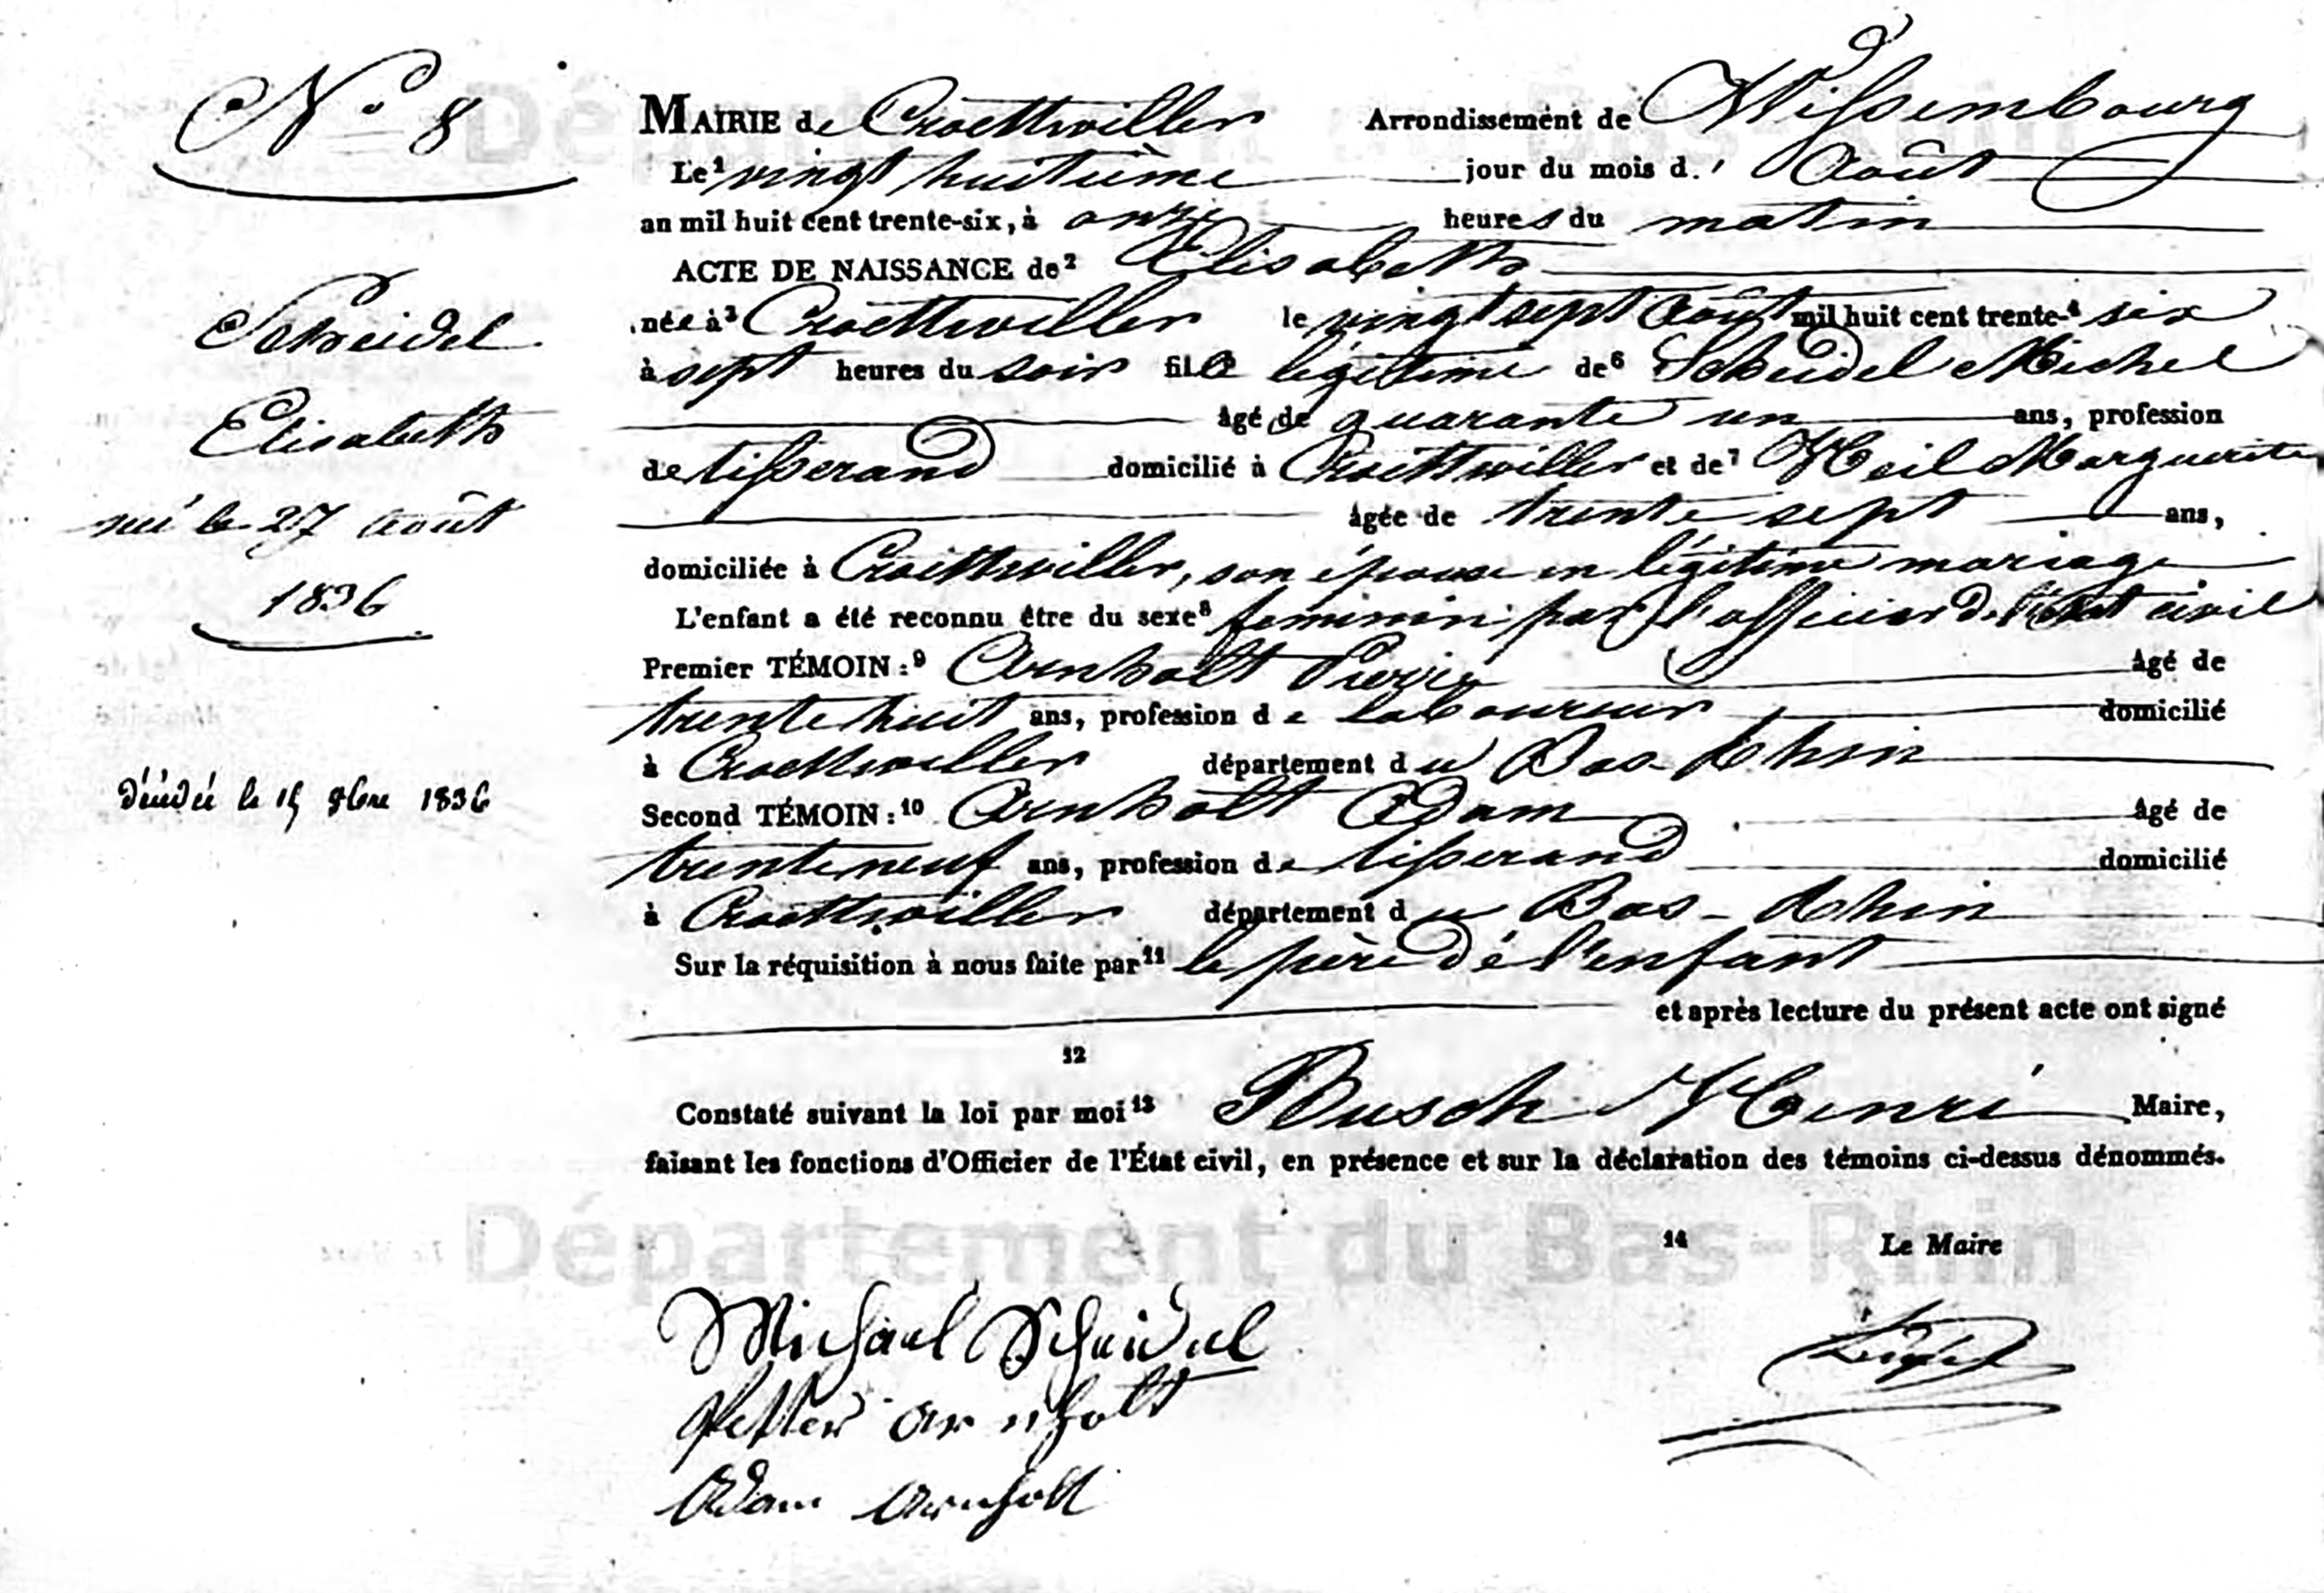 N° 8
Scheidel
Elisabeth
né le 27 août
1836
décédée le 15 8bre 1836
MAIRIE de Croettwiller Arrondissement de Wissembourg
Le¹ vingt huitième jour du mois d' Août
an mil huit cent trente-six, à onze heures du matin
ACTE DE NAISSANCE de² Elisabeth
née à³ Croettwiller le vingt sept Août mil huit cent trente-⁴ six
à sept heures du soir fille légitime de⁶ Scheidel Michel
âgé de quarante un ans, profession
de tisserand domicilié à Croettwiller et de⁷ Heil Marguerite
âgée de trente sept ans,
domiciliée à Croettwiller, son épouse en légitime mariage
L'enfant a été reconnu être du sexe⁸ feminin par l'officier de l'état civil
Premier TÉMOIN :⁹ Arnholt Pierre âgé de
trente huit ans, profession de laboureur domicilié
à Croettwiller département du Bas-Rhin
Second TÉMOIN :¹⁰ Arnholt Adam âgé de
trente neuf ans, profession de tisserand domicilié
à Croettwiller département du Bas-Rhin
Sur la réquisition à nous faite par¹¹ le père de l'enfant
et après lecture du présent acte ont signé
12
Constaté suivant la loi par moi¹³ Busch Henri Maire,
faisant les fonctions d'Officier de l'État civil, en présence et sur la déclaration des témoins ci-dessus dénommés.
Département du Bas-Rhin
14 Le Maire
Michael Scheidel
Petter arnholt
Adam Arnholt